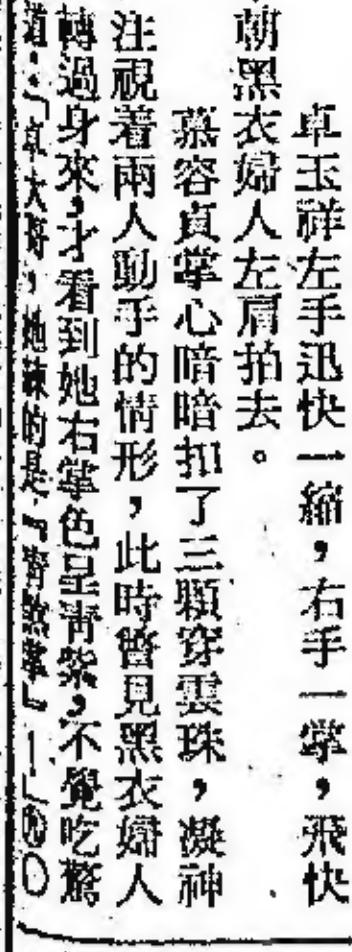 卓玉祥左手迅快一縮，右手一掌，飛快
朝黑衣婦人左肩拍去。
慕容貞掌心暗暗扣了三顆穿雲珠，凝神
注視着兩人動手的情形，此時瞥見黑衣婦人
轉過身來，才看到她右掌色呈青紫，不覺吃驚
道：「卓大哥，她練的是『青煞掌』！」㊈〇